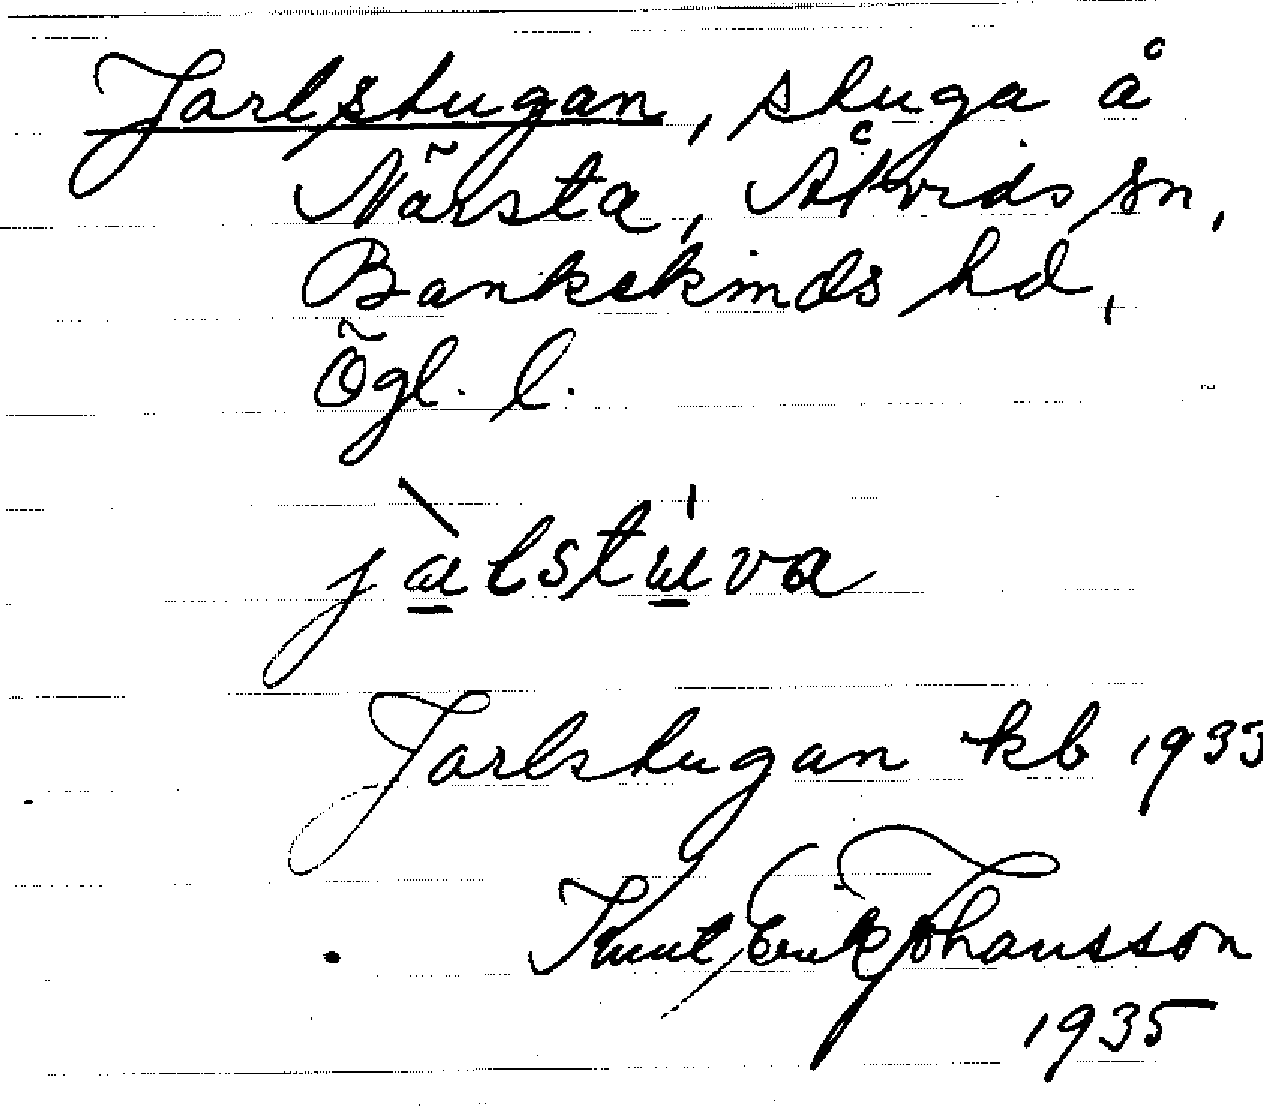 Jarlstugan, stuga å
Närsta, Åtvids sn,
Bankekinds hd,
Ögl. l.
Jarlstugan kb 1933
Knut Erik Johansson
1935